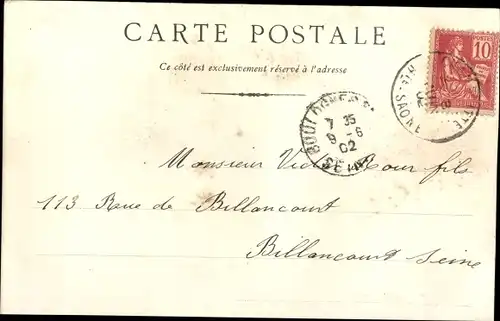 CARTE POSTALE
Ce côté est exclusivement réservé à l'adresse
POSTES
10
SAONE
BOULOGNE
7 35
9 - 6
02
SEINE
Monsieur Victor Cour fils
113 Rue de Billancourt
Billancourt Seine